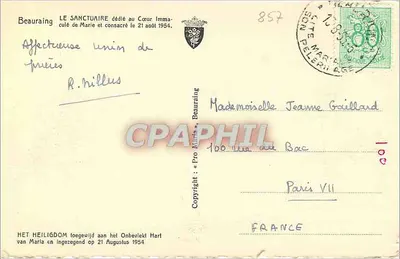 Beauraing LE SANCTUAIRE dédié au Cœur Imma-
culé de Marie et consacré le 21 août 1954.
857
Affectueuse union de
prières
R. Nillus
Mademoiselle Jeanne Gaillard
100 rue du Bac
Paris VII
FRANCE
100
Copyright : « Pro Maria », Beauraing
CPAPHIL
HET HEILIGDOM toegewijd aan het Onbevlekt Hart
van Maria en ingezegend op 21 Augustus 1954
CITE MARIALE
SON PELERINAGE